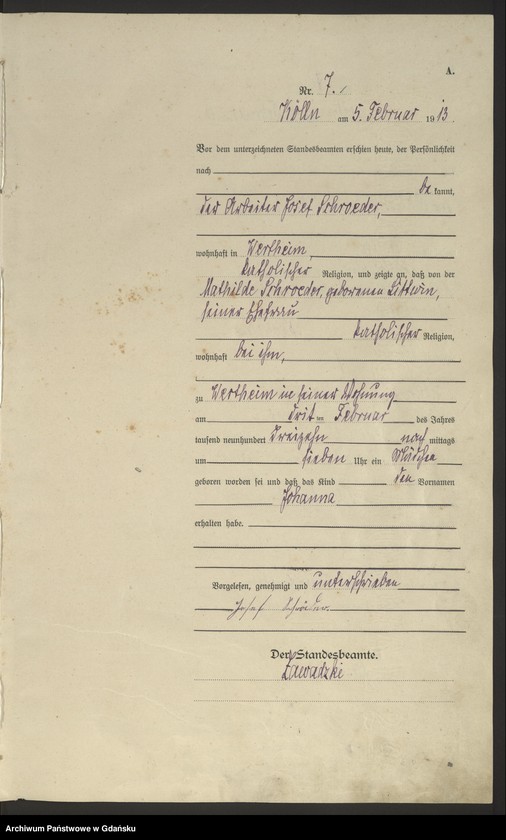 A.
Nr. 7.
Kölln am 5. Februar 1913
Vor dem unterzeichneten Standesbeamten erschien heute, der Persönlichkeit
nach
be kannt,
der Arbeiter Josef Schroeder,
wohnhaft in Wertheim,
katholischer Religion, und zeigte an, daß von der
Mathilde Schroeder, geborenen Littwin,
seiner Ehefrau
katholischer Religion,
wohnhaft bei ihm,
zu Wertheim in seiner Wohnung
am dritten Februar des Jahres
tausend neunhundert dreizehn nach mittags
um sieben Uhr ein Mädchen
geboren worden sei und daß das Kind den Vornamen
Johanna
erhalten habe.
Vorgelesen, genehmigt und unterschrieben
Josef Schröder
Der Standesbeamte.
Zawadzki
Archiwum Państwowe w Gdańsku